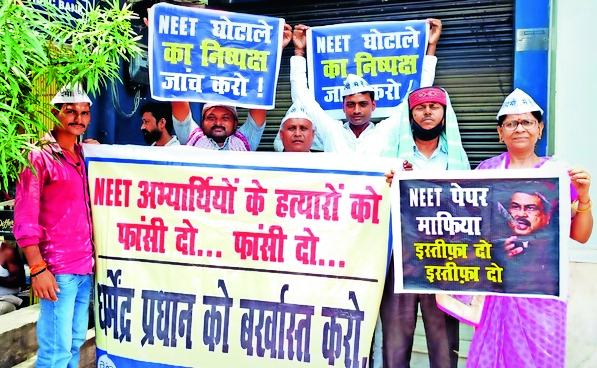 NEET घोटाले
का निष्पक्ष
जांच करो !
NEET घोटाले
का निष्पक्ष
जांच करो !
NEET अभ्यार्थियों के हत्यारों को
फांसी दो... फांसी दो...
धर्मेंद्र प्रधान को बर्खास्त करो.
NEET पेपर
माफिया
इस्तीफ़ा दो
इस्तीफ़ा दो
BANK